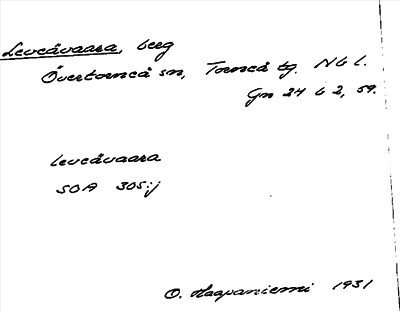 Leveåvaara, berg
Övertorneå sn, Torneå tg. Nb l.
Gn 24 b 2, 59.
leveåvaara
SOA 305:j
O. Haapaniemi 1931